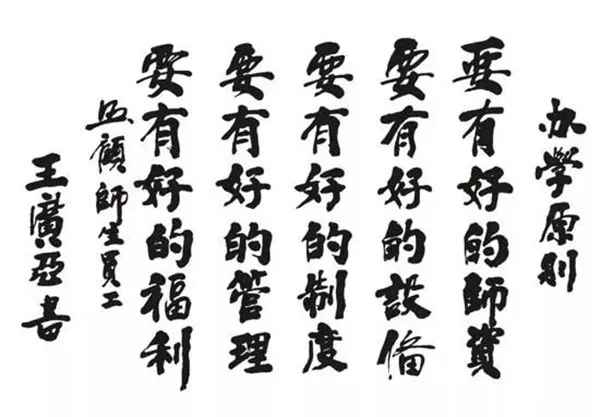 办学原则
要有好的師資
要有好的設俻
要有好的制度
要有好的管理
要有好的福利
照顧師生員工
王廣亞書